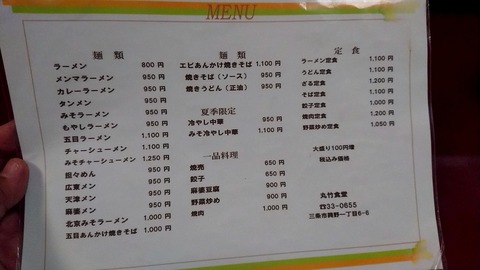 MENU
麺 類
ラーメン 800 円
メンマラーメン 950 円
カレーラーメン 950 円
タンメン 950 円
みそラーメン 950 円
もやしラーメン 950 円
五目ラーメン 1,100 円
チャーシューメン 1,100 円
みそチャーシューメン 1,250 円
担々めん 950 円
広東メン 950 円
天津メン 950 円
麻婆メン 950 円
北京みそラーメン 1,000 円
五目あんかけ焼きそば 1,000 円
麺 類
エビあんかけ焼きそば 1,100 円
焼きそば（ソース） 950 円
焼きうどん（正油） 950 円
夏季限定
冷やし中華 950 円
みそ冷やし中華 1,100 円
一品料理
焼売 650 円
餃子 650 円
麻婆豆腐 900 円
野菜炒め 900 円
焼肉 1,000 円
定 食
ラーメン定食 1,100 円
うどん定食 1,100 円
ざる定食 1,200 円
そば定食 1,100 円
餃子定食 1,000 円
焼肉定食 1,200 円
野菜炒め定食 1,050 円
大盛り100円増
税込み価格
丸竹食堂
☎33-0655
三条市興野一丁目6-6